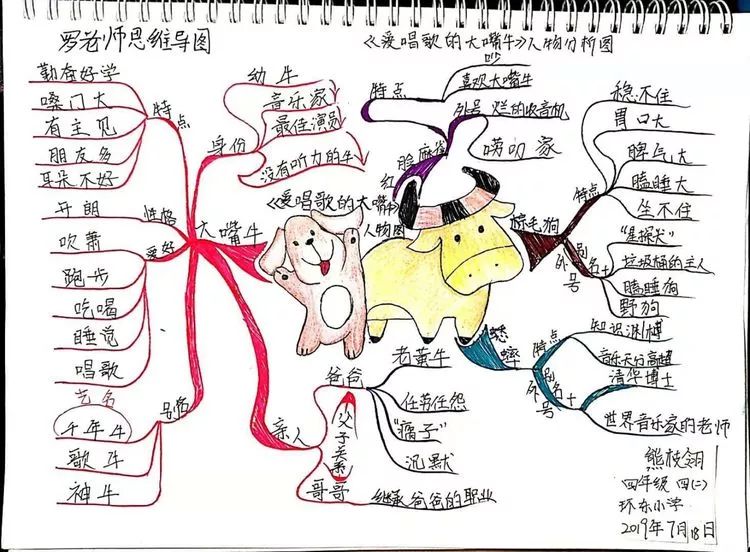 罗老师思维导图
《爱唱歌的大嘴牛》人物分析图
勤奋好学
嗓门大
有主见
朋友多
耳朵不好
特点
开朗
性格
吹萧
跑步
吃喝
睡觉
唱歌
爱好
艺名
千年牛
歌牛
神牛
别名
大嘴牛
身份
幼牛
音乐家
最佳演员
没有听力的牛
《爱唱歌的大嘴牛》
人物图
亲人
爸爸
父子关系
哥哥
老黄牛
任劳任怨
"瘸子"
沉默
继承爸爸的职业
红脸麻雀
特点
喜欢大嘴牛
外号
烂的收音机
唠叨家
棕毛狗
特点
稳不住
胃口大
脾气大
瞌睡大
坐不住
别名+外号
"星探犬"
垃圾桶的主人
瞌睡狗
野狗
蟋蟀
特点
知识渊博
音乐天分高超
别名+外号
清华博士
世界音乐家的老师
四年级 四(二)
环东小学
2019年7月18日